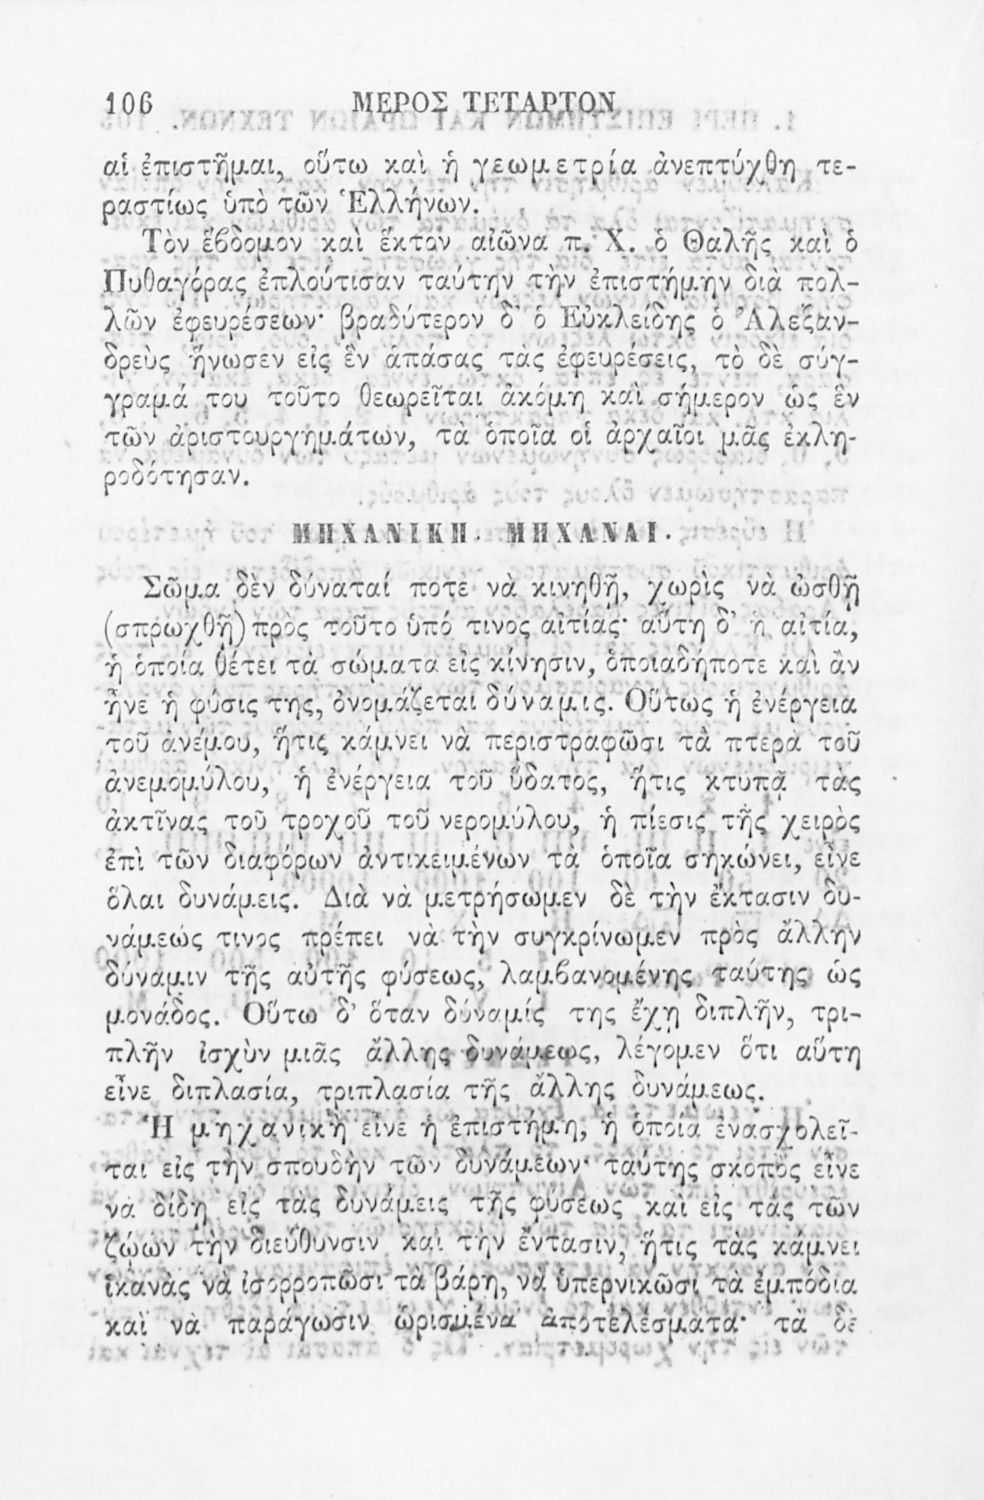 106 ΜΕΡΟΣ ΤΕΤΑΡΤΟΝ
αἱ ἐπιστῆμαι, οὕτω καὶ ἡ γεωμετρία ἀνεπτύχθη τε-
ραστίως ὑπὸ τῶν Ἑλλήνων.
Τὸν ἕβδομον καὶ ἕκτον αἰῶνα π. Χ. ὁ Θαλῆς καὶ ὁ
Πυθαγόρας ἐπλούτισαν ταύτην τὴν ἐπιστήμην διὰ πολ-
λῶν ἐφευρέσεων· βραδύτερον δ' ὁ Εὐκλείδης ὁ Ἀλεξαν-
δρεὺς ἥνωσεν εἰς ἓν ἁπάσας τὰς ἐφευρέσεις, τὸ δὲ σύγ-
γραμά του τοῦτο θεωρεῖται ἀκόμη καὶ σήμερον ὡς ἓν
τῶν ἀριστουργημάτων, τὰ ὁποῖα οἱ ἀρχαῖοι μᾶς ἐκλη-
ροδότησαν.
ΜΗΧΑΝΙΚΗ. ΜΗΧΑΝΑΙ.
Σῶμα δὲν δύναταί ποτε νὰ κινηθῇ, χωρὶς νὰ ὠσθῇ
(σπρωχθῇ) πρὸς τοῦτο ὑπό τινος αἰτίας· αὕτη δ' ἡ αἰτία,
ἡ ὁποία θέτει τὰ σώματα εἰς κίνησιν, ὁποιαδήποτε καὶ ἂν
ἦνε ἡ φύσις της, ὀνομάζεται δύναμις. Οὕτως ἡ ἐνέργεια
τοῦ ἀνέμου, ἥτις κάμνει νὰ περιστραφῶσι τὰ πτερὰ τοῦ
ἀνεμομύλου, ἡ ἐνέργεια τοῦ ὕδατος, ἥτις κτυπᾷ τὰς
ἀκτῖνας τοῦ τροχοῦ τοῦ νερομύλου, ἡ πίεσις τῆς χειρὸς
ἐπὶ τῶν διαφόρων ἀντικειμένων τὰ ὁποῖα σηκώνει, εἶνε
ὅλαι δυνάμεις. Διὰ νὰ μετρήσωμεν δὲ τὴν ἔκτασιν δυ-
νάμεώς τινος πρέπει νὰ τὴν συγκρίνωμεν πρὸς ἄλλην
δύναμιν τῆς αὐτῆς φύσεως, λαμβανομένης ταύτης ὡς
μονάδος. Οὕτω δ' ὅταν δύναμίς της ἔχῃ διπλῆν, τρι-
πλῆν ἰσχὺν μιᾶς ἄλλης δυνάμεως, λέγομεν ὅτι αὕτη
εἶνε διπλασία, τριπλασία τῆς ἄλλης δυνάμεως.
Ἡ μηχανικὴ εἶνε ἡ ἐπιστήμη, ἡ ὁποία ἐνασχολεῖ-
ται εἰς τὴν σπουδὴν τῶν δυνάμεων· ταύτης σκοπὸς εἶνε
νὰ δίδῃ εἰς τὰς δυνάμεις τῆς φύσεως καὶ εἰς τὰς τῶν
ζῴων τὴν διεύθυνσιν καὶ τὴν ἔντασιν, ἥτις τὰς κάμνει
ἱκανὰς νὰ ἰσορροπῶσι τὰ βάρη, νὰ ὑπερνικῶσι τὰ ἐμπόδια
καὶ νὰ παράγωσιν ὡρισμένα ἀποτελέσματα· τὰ δὲ